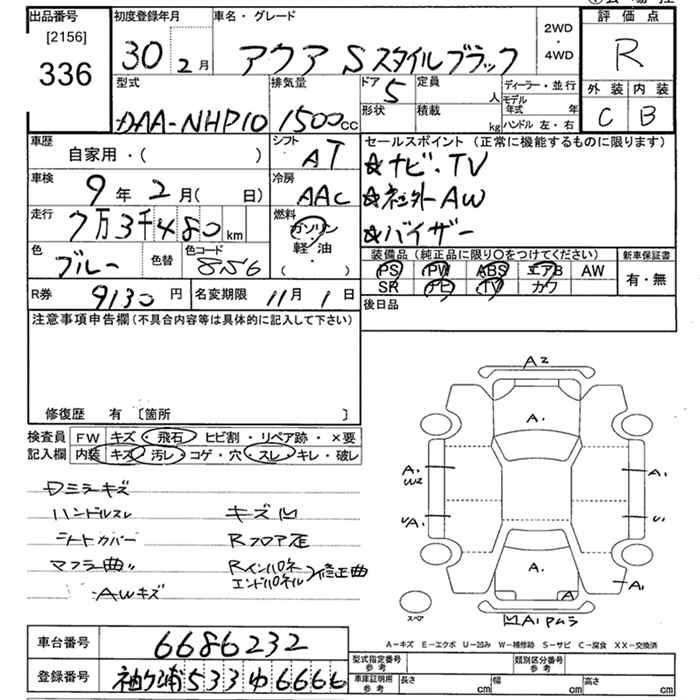 出品番号 [2156] 336
初度登録年月 30 2月
車名・グレード アクア Sスタイルブラック
2WD・4WD
評価点 R
外装 C 内装 B
型式 DAA-NHP10
排気量 1500cc
ドア 5
定員 人
形状
積載 kg
ディーラー・並行
モデル年式 年
ハンドル 左・右
車歴 自家用・( )
シフト AT
車検 9年 2月( 日)
冷房 AAC
走行 7万3千480km
燃料 ガソリン 軽油・( )
色 ブルー 色替
色コード 8S6
R券 9130円
名変期限 11月1日
セールスポイント(正常に機能するものに限ります)
☆ナビ・TV
☆社外AW
☆バイザー
装備品(純正品に限り○をつけてください)
PS PW ABS エアB AW
SR ナビ TV カワ
新車保証書
有・無
後日品
注意事項申告欄(不具合内容等は具体的に記入して下さい)
修復歴 有〔箇所 〕
検査員記入欄
FW キズ・飛石・ヒビ割・リペア跡・×要
内装 キズ・汚レ・コゲ・穴・スレ・キレ・破レ
ハンドルスレ キズ凹
シートカバー Rフロア歪
マフラー曲 Rインパネ エンドパネル 修正曲
AWキズ
A2
A.
A. W2
A.
UA.
U.
A.
A.
A.
A.
スペア
A1
A-キズ E-エクボ U-凹み W-補修跡 S-サビ C-腐食 XX-交換済
車台番号 6686232
登録番号 袖ケ浦 533 ゆ 6666
型式指定番号 参考
類別区分番号 参考
車庫証明用 参考 長さ cm 幅 cm 高さ cm